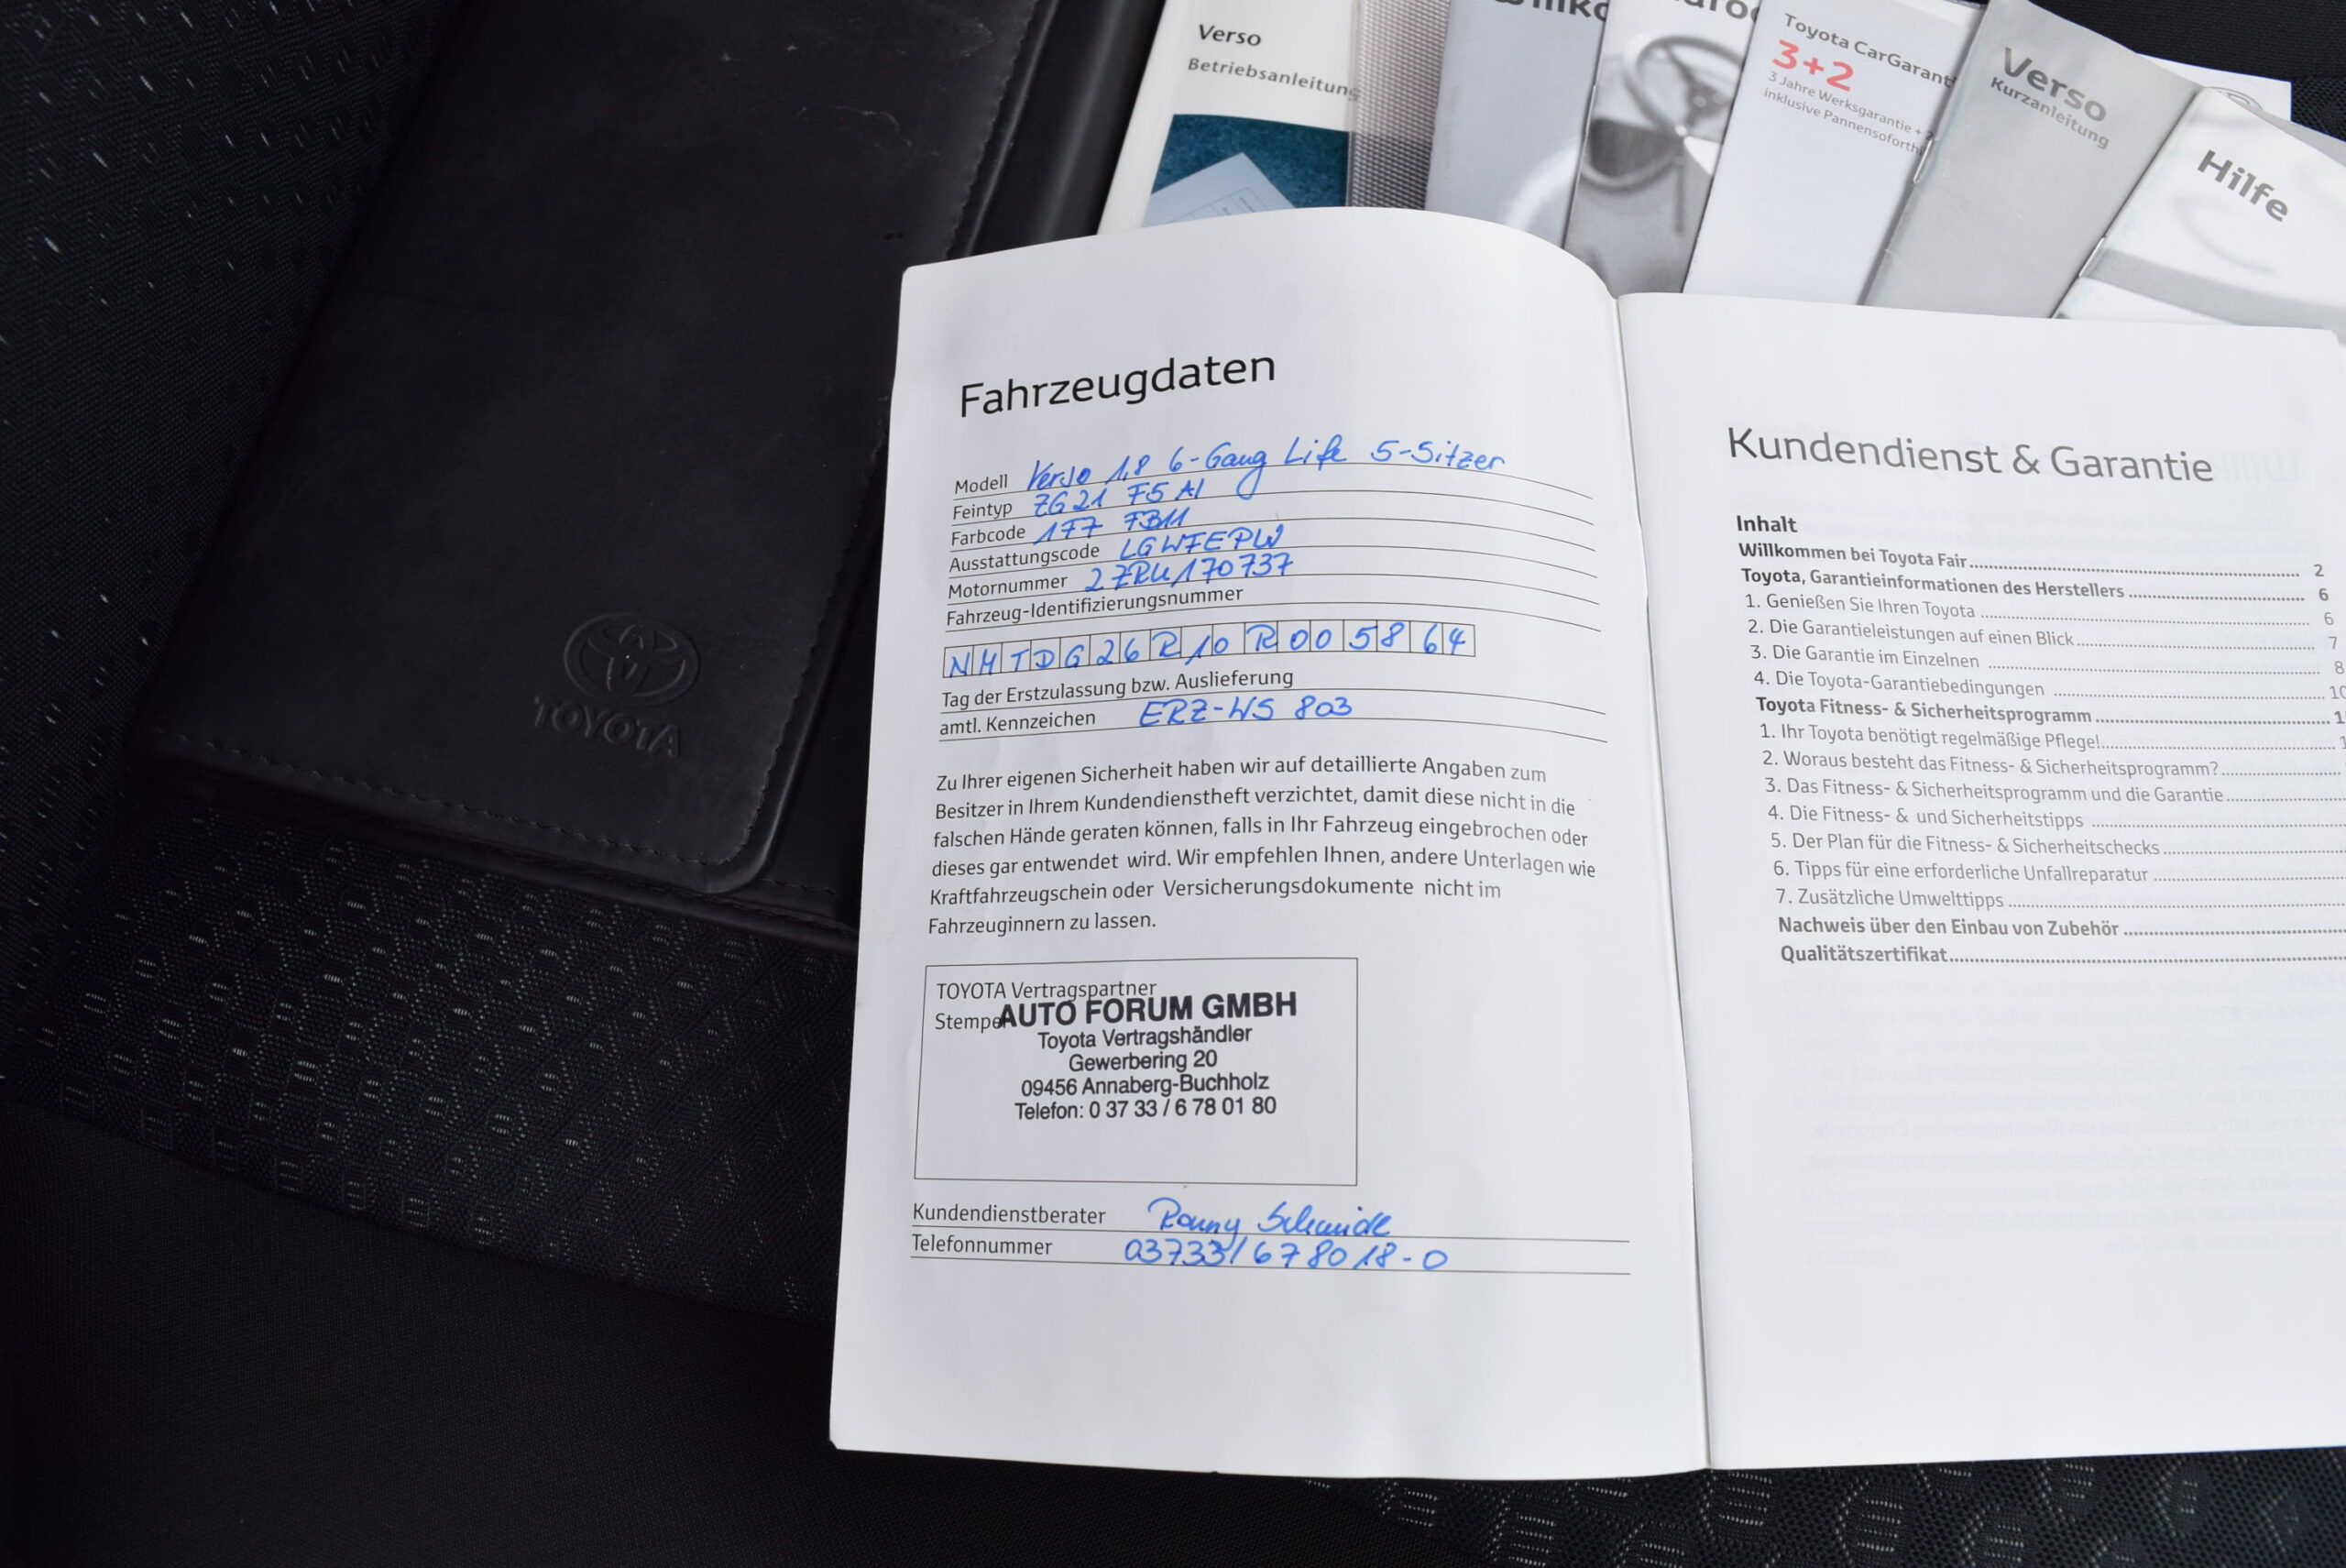 Verso
Betriebsanleitung
Toyota CarGaranti
3+2
3 Jahre Werksgarantie + 2
inklusive Pannensoforthi
Verso
Kurzanleitung
Hilfe
TOYOTA
Fahrzeugdaten
Modell Verso 1,8 6-Gang Life 5-Sitzer
Feintyp ZG21 F5 AI
Farbcode 1F7 FB11
Ausstattungscode LGWFEPW
Motornummer 2ZRU170737
Fahrzeug-Identifizierungsnummer
NMTDG26R10R005864
Tag der Erstzulassung bzw. Auslieferung
amtl. Kennzeichen ERZ-WS 803
Zu Ihrer eigenen Sicherheit haben wir auf detaillierte Angaben zum
Besitzer in Ihrem Kundendienstheft verzichtet, damit diese nicht in die
falschen Hände geraten können, falls in Ihr Fahrzeug eingebrochen oder
dieses gar entwendet wird. Wir empfehlen Ihnen, andere Unterlagen wie
Kraftfahrzeugschein oder Versicherungsdokumente nicht im
Fahrzeuginnern zu lassen.
TOYOTA Vertragspartner
Stempel
AUTO FORUM GMBH
Toyota Vertragshändler
Gewerbering 20
09456 Annaberg-Buchholz
Telefon: 0 37 33 / 6 78 01 80
Kundendienstberater Ronny Schmidt
Telefonnummer 03733/678018-0
Kundendienst & Garantie
Inhalt
Willkommen bei Toyota Fair 2
Toyota, Garantieinformationen des Herstellers 6
1. Genießen Sie Ihren Toyota 6
2. Die Garantieleistungen auf einen Blick 7
3. Die Garantie im Einzelnen 8
4. Die Toyota-Garantiebedingungen 10
Toyota Fitness- & Sicherheitsprogramm 1
1. Ihr Toyota benötigt regelmäßige Pflege! 1
2. Woraus besteht das Fitness- & Sicherheitsprogramm?
3. Das Fitness- & Sicherheitsprogramm und die Garantie
4. Die Fitness- & und Sicherheitstipps
5. Der Plan für die Fitness- & Sicherheitschecks
6. Tipps für eine erforderliche Unfallreparatur
7. Zusätzliche Umwelttipps
Nachweis über den Einbau von Zubehör
Qualitätszertifikat